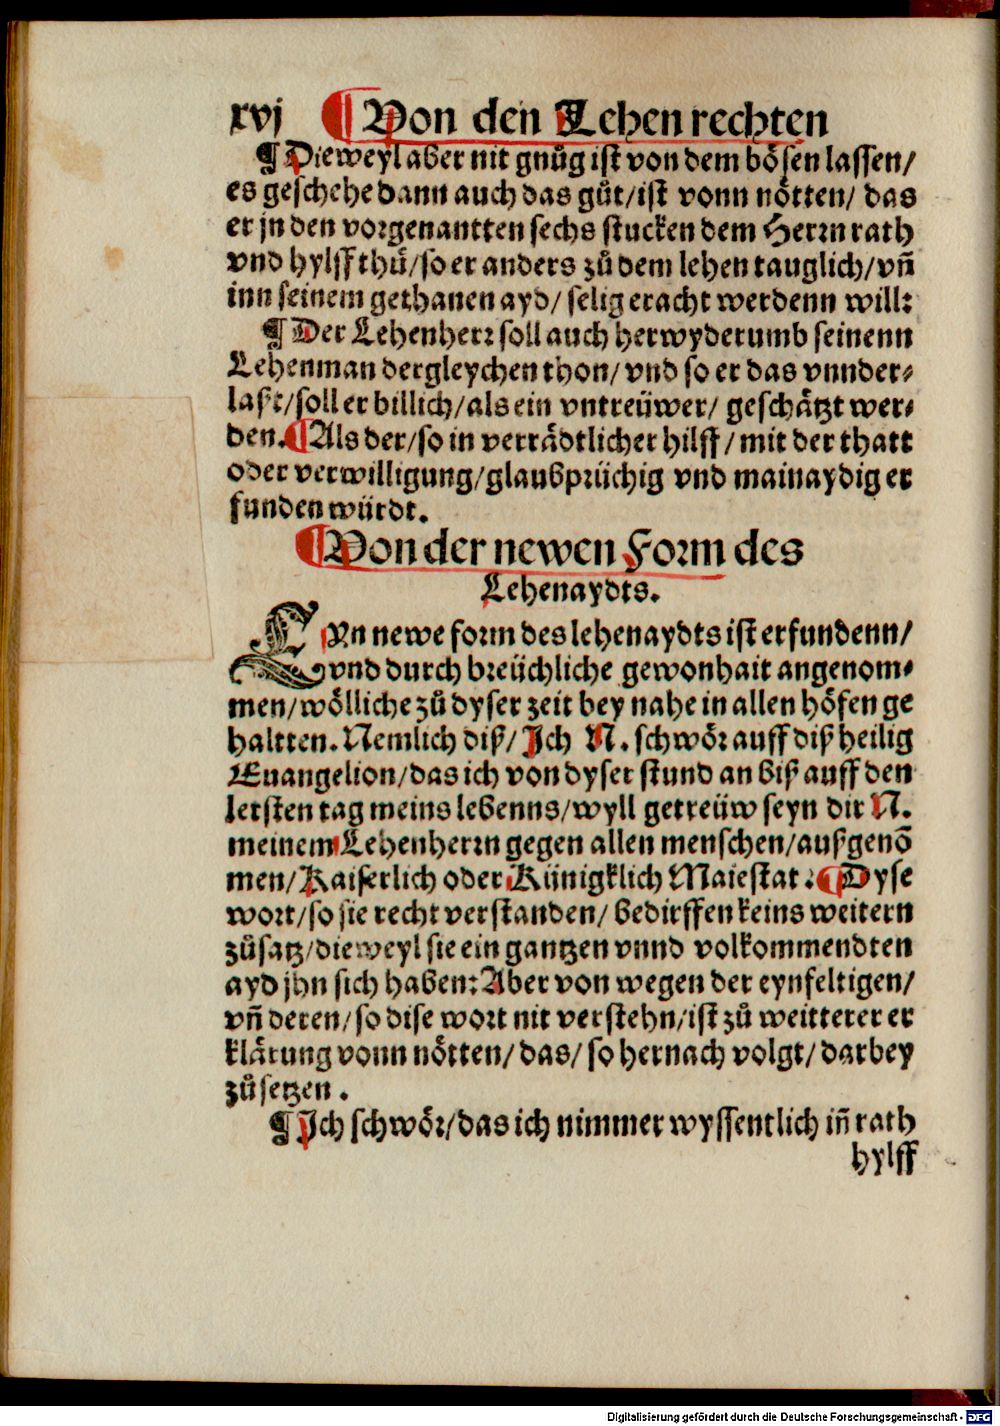 xvj ¶ Von den Lehen rechten
¶ Dieweyl aber nit gnůg ist von dem bösen lassen/
es geschehe dann auch das gůt/ist vonn nötten/ das
er jn den vorgenantten sechs stucken dem Herrn rath
vnd hylff thů/so er anders zů dem lehen tauglich/vñ
inn seinem gethanen ayd/ selig eracht werdenn will:
¶ Der Lehenherr soll auch herwyderumb seinenn
Lehenman dergleychen thon/ vnd so er das vnnder⸗
laßt/soll er billich/als ein vntreüwer/ geschätzt wer⸗
den. ¶ Als der/so in verrädtlicher hilff/mit der thatt
oder verwilligung/glaubprüchig vnd mainaydig er
funden würdt.
¶ Von der newen Form des
Lehenaydts.
Eyn newe form des lehenaydts ist erfundenn/
vnd durch breüchliche gewonhait angenom⸗
men/wölliche zů dyser zeit bey nahe in allen höfen ge
haltten. Nemlich diß/ Jch N. schwör auff diß heilig
Euangelion/das ich von dyser stund an biß auff den
letsten tag meins lebenns/wyll getreüw seyn dir N.
meinem Lehenherrn gegen allen menschen/außgenõ
men/Kaiserlich oder Künigklich Maiestat. ¶ Dyse
wort/so sie recht verstanden/ bedirffen keins weitern
zůsatz/dieweyl sie ein gantzen vnnd volkommendten
ayd jhn sich haben: Aber von wegen der eynfeltigen/
vñ deren/so dise wort nit verstehn/ist zů weitterer er
klärung vonn nötten/das/ so hernach volgt/darbey
zůsetzen.
¶ Jch schwör/das ich nimmer wyssentlich iñ rath
hylff
Digitalisierung gefördert durch die Deutsche Forschungsgemeinschaft - DFG